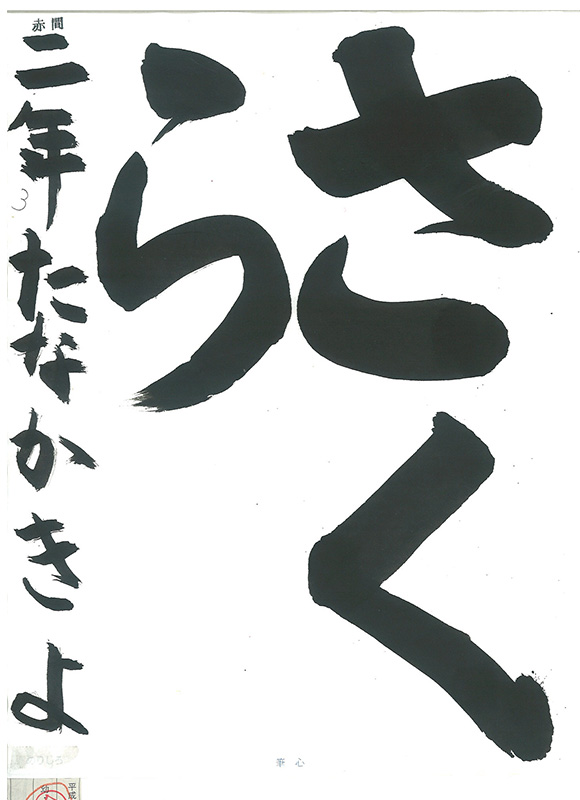 さく
ら
二年たなかきよ
赤間
心筆
平成
幼